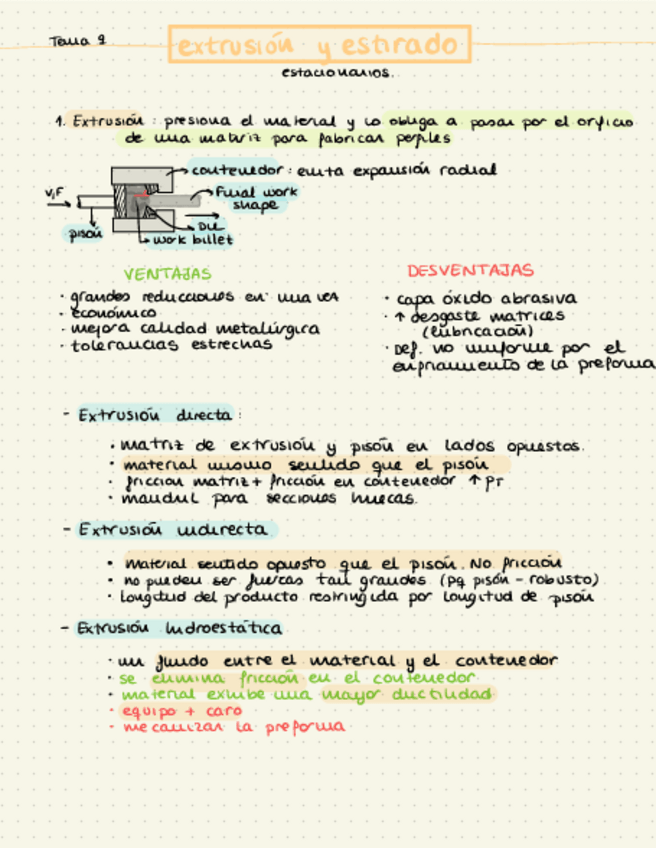 Tema 9
extrusión y estirado
estacionarios.
1. Extrusión : presiona el material y lo obliga a pasar por el orificio
de una matriz para fabricar perfiles
contenedor : evita expansión radial
V,F
Final work
shape
pisón
Die
work billet
VENTAJAS
· grandes reducciones en una vez
· económico
· mejora calidad metalúrgica
· tolerancias estrechas
DESVENTAJAS
· capa óxido abrasiva
· ↑ desgaste matrices
(lubricación)
· Def. no uniforme por el
enfriamiento de la preforma
- Extrusión directa :
· matriz de extrusión y pisón en lados opuestos.
· material mismo sentido que el pisón
· fricción matriz + fricción en contenedor ↑ PT
· mandril para secciones huecas.
- Extrusión indirecta
· material sentido opuesto que el pisón. No fricción
· no pueden ser fuerzas tan grandes (pq pisón - robusto)
· longitud del producto restringida por longitud de pisón
- Extrusión hidroestática
· un fluido entre el material y el contenedor
· se elimina fricción en el contenedor
· material exhibe una mayor ductilidad
· equipo + caro
· mecanizar la preforma